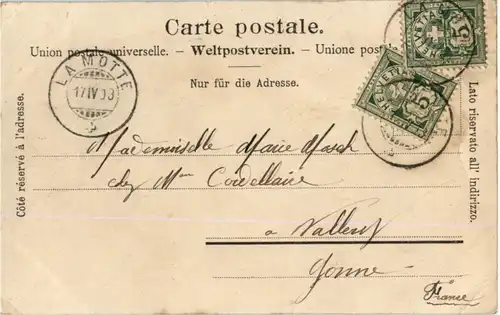 Carte postale.
Union postale universelle. – Weltpostverein. – Unione postale
Nur für die Adresse.
LA MOTTE
17 IV 03
HELVETIA
5
5
Côté réservé à l'adresse.
Lato riservato all' indirizzo.
Mademoiselle Marie
chez Mme Cordellaire
a Vallery
Yonne
France